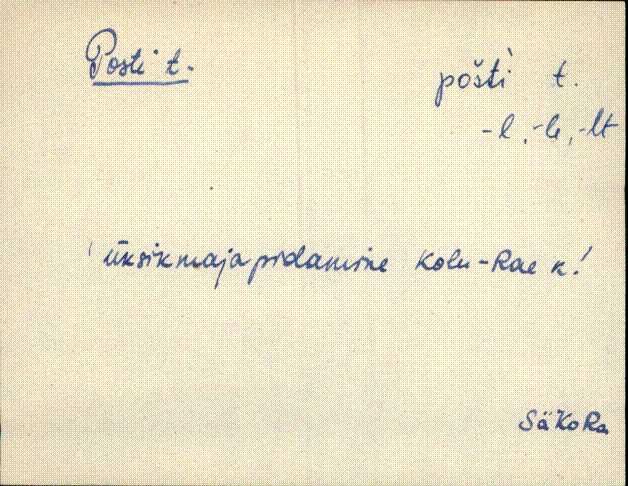 Posti t.
pošti̇̀ t.
-l, -le, -lt
' üksikmajapidamine Kolu-Rae k.'
SäKoRa